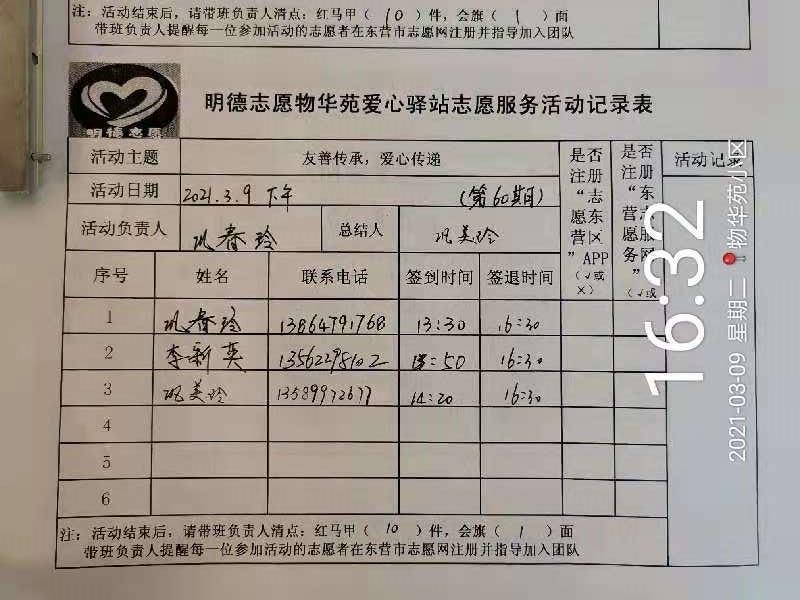 注：活动结束后，请带班负责人清点：红马甲（ 10 ）件，会旗（ 1 ）面
带班负责人提醒每一位参加活动的志愿者在东营市志愿网注册并指导加入团队
明德志愿
明德志愿物华苑爱心驿站志愿服务活动记录表
活动主题 友善传承，爱心传递 是否注册“志愿东营区”APP（√或×） 是否注册“东营志愿服务网”（√或 活动记录
活动日期 2021.3.9 下午 （第60期日）
活动负责人 巩春玲 总结人 巩美玲
序号 姓名 联系电话 签到时间 签退时间
1 巩春玲 13864791768 13:30 16:30
2 李新英 13562298102 :50 16:30
3 巩美玲 13589972677 14:20 16:30
4
5
6
注：活动结束后，请带班负责人清点：红马甲（ 10 ）件，会旗（ 1 ）面
带班负责人提醒每一位参加活动的志愿者在东营市志愿网注册并指导加入团队
16:32
2021-03-09 星期二 物华苑小区